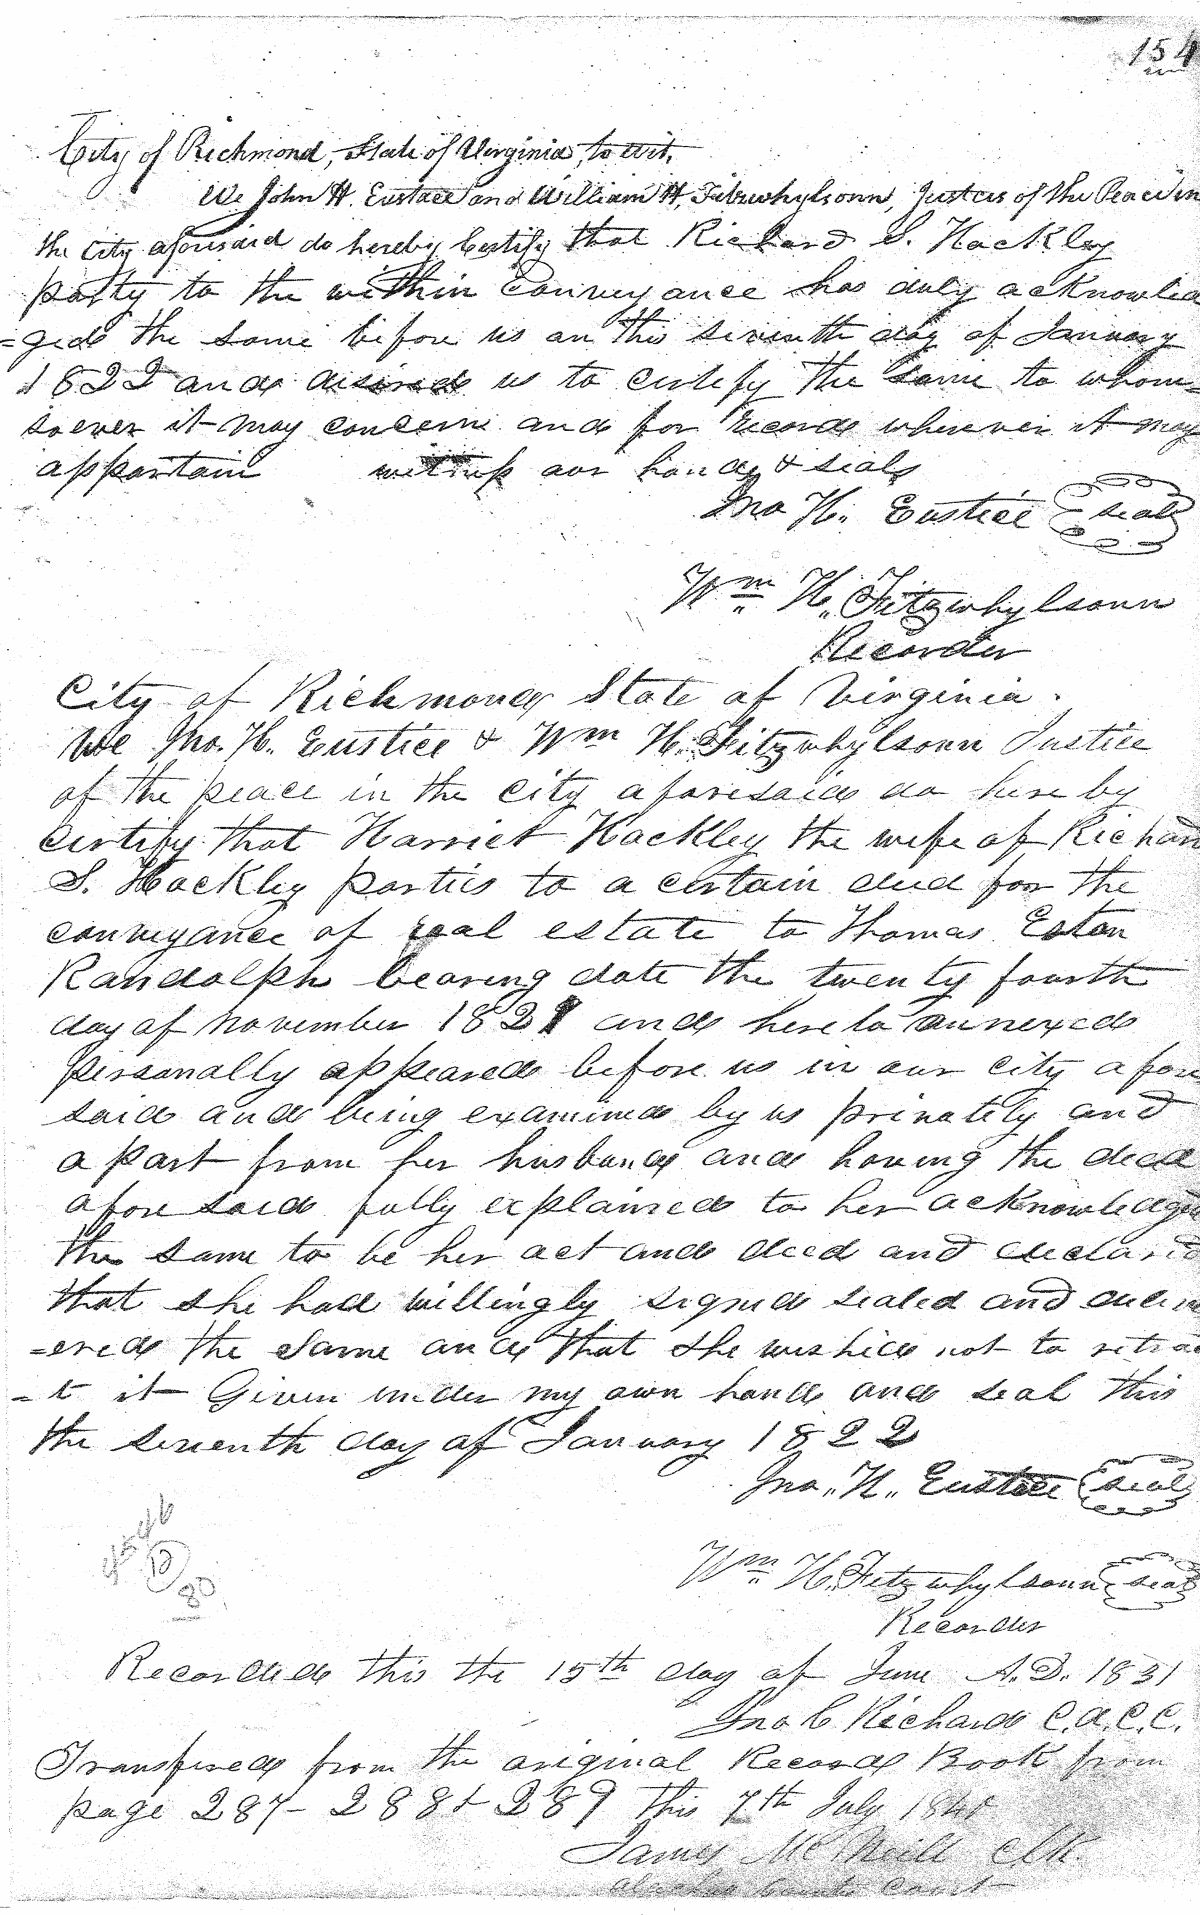 154
City of Richmond, State of Virginia, to wit,
We John H. Eustace and William H. Fitzwhylsonn, Justices of the Peace in
the City aforesaid do hereby Certify that Richard S. Hackley
party to the within Conveyance has duly acknowled
=ged the same before us on this seventh day of January
1822 and desired us to certify the same to whom=
soever it may concern and for record wherever it may
appartain witness our hands & seals
Jno H. Eustice seal
Wm H. Fitzwhylsonn
Recorder
City of Richmond State of Virginia.
We Jno. H. Eustice & Wm H. Fitzwhylsonn Justice
of the peace in the city aforesaid do here by
Certify that Harriet Hackley the wife of Richard
S. Hackley parties to a certain deed for the
conveyance of real estate to Thomas Eston
Randolph bearing date the twenty fourth
day of November 1821 and hereto annexed
personally appeared before us in our city afore
said and being examined by us privately and
apart from her husband and having the deed
afore said fully explained to her acknowledged
the same to be her act and deed and declared
that she had willingly signed sealed and deliv
=ered the same and that she wished not to retrac
=t it Given under my own hand and seal this
the seventh day of January 1822
Jno. H. Eustice seal
Wm H. Fitzwhylsonn seal
Recorder
Recorded this the 15th day of June A.D. 1831
Jno C Richards C.A.C.C.
Transfired from the original Record Book from
page 287- 288 & 289 this 7th July 1840
James McNeill Clk
County Court